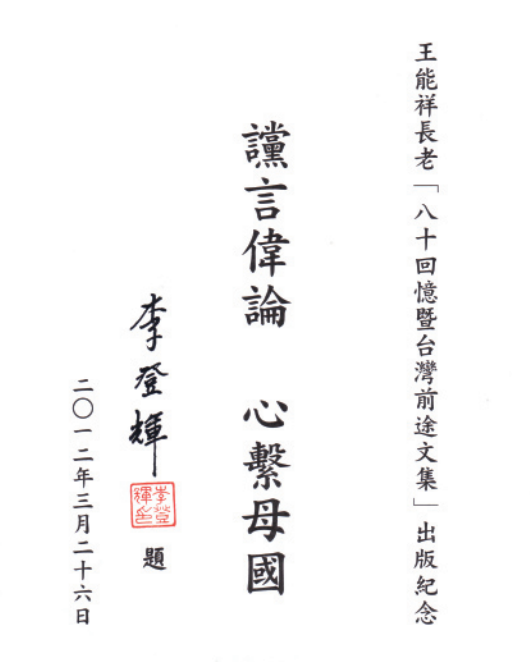 王能祥長老「八十回憶暨台灣前途文集」出版紀念
讜言偉論 心繫母國
李登輝
李登輝印
題
二〇一二年三月二十六日